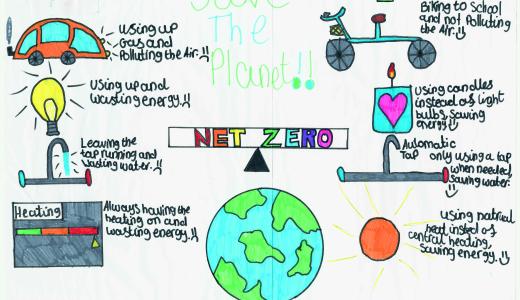 Save
The
Planet!!
using up
Gas and
Polluting the Air.
Biking to School
and not Polluting
the Air.
Using up and
wasting energy.
using candles
instead of light
bulbs, Saving
energy
Leaving the
tap running and
wasting water.
NET ZERO
Automatic
Tap only using a tap
when needed,
Saving water.
Heating
Always having the
heating on and
wasting energy.
using
heat insted of
central heating,
Saving energy.